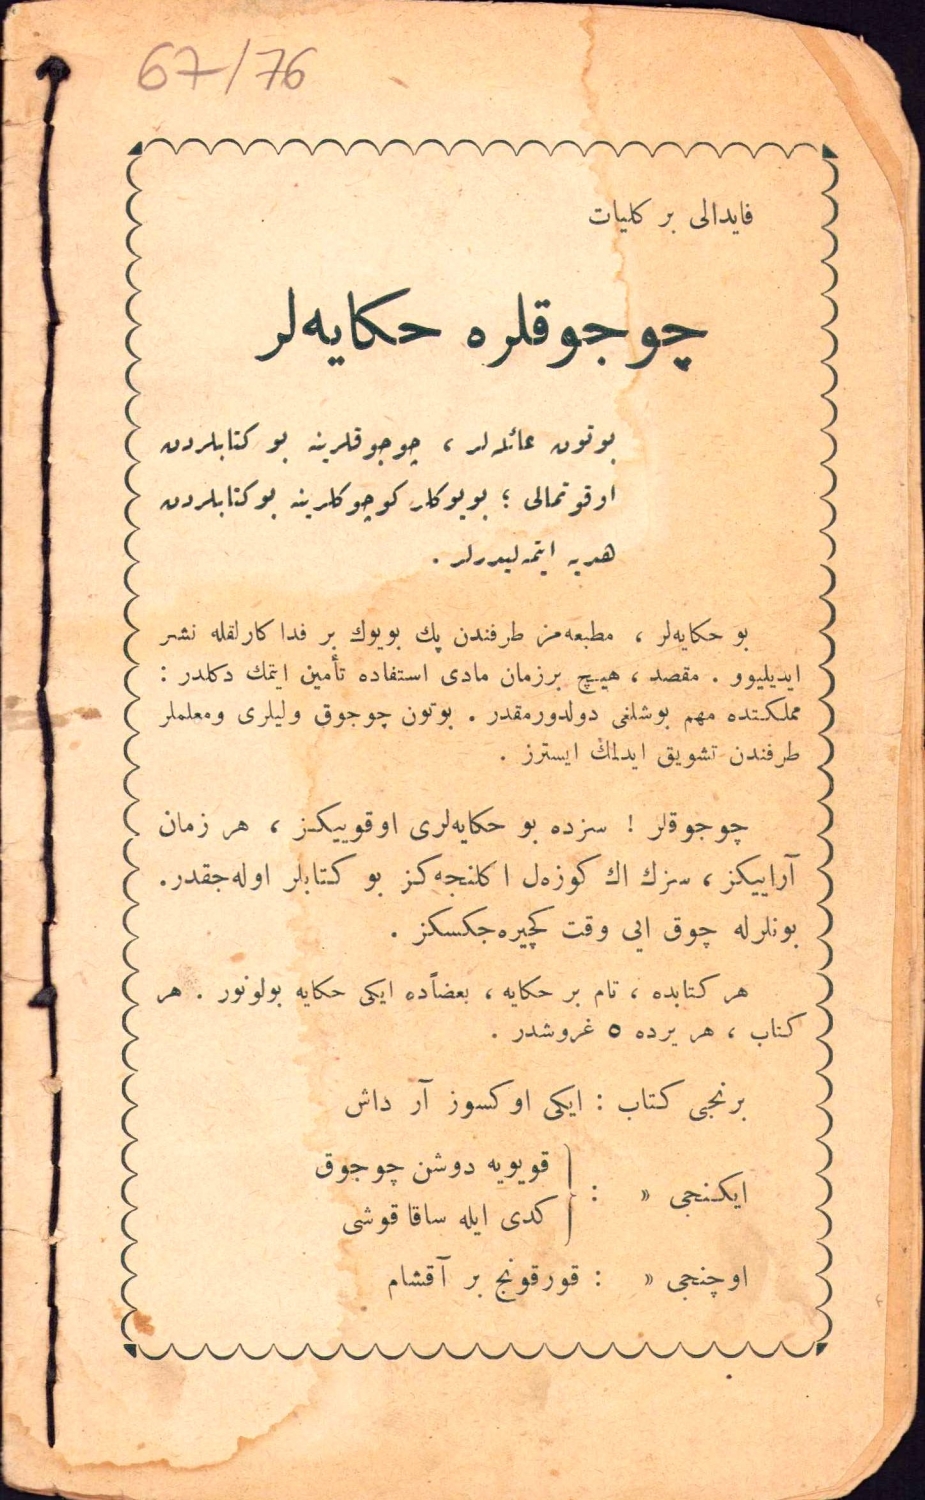 67/76
فايدالى بر كليات
چوجوقلره حكايه‌لر
بوتون عائله‌لر ، چوجوقلرينه بو كتابلردن
اوقوتمالى ؛ بويوكلر كوچوكلرينه بو كتابلردن
هديه ايتمه‌ليدرلر .
بو حكايه‌لر ، مطبعه‌مز طرفندن پك بويوك بر فداكارلقله نشر
ايديليوو . مقصد ، هيچ برزمان مادى استفاده تأمين ايتمك دكلدر :
مملكتده مهم بوشلغى دولدورمقدر . بوتون چوجوق وليلرى ومعلملر
طرفندن تشويق ايدلمك ايسترز .
چوجوقلر ! سزده بو حكايه‌لرى اوقوييكز ، هر زمان
آراييكز ، سزك اك كوزه‌ل اكلنجه‌كز بو كتابلر اوله‌جقدر .
بونلرله چوق ايى وقت كچيره‌جكسكز .
هر كتابده ، تام بر حكايه ، بعضاًده ايكى حكايه بولونور . هر
كتاب ، هر يرده ٥ غروشدر .
برنجى كتاب : ايكى اوكسوز آر داش
ايكنجى » : قويويه دوشن چوجوق
كدى ايله ساقا قوشى
اوچنجى » : قورقونج بر آقشام